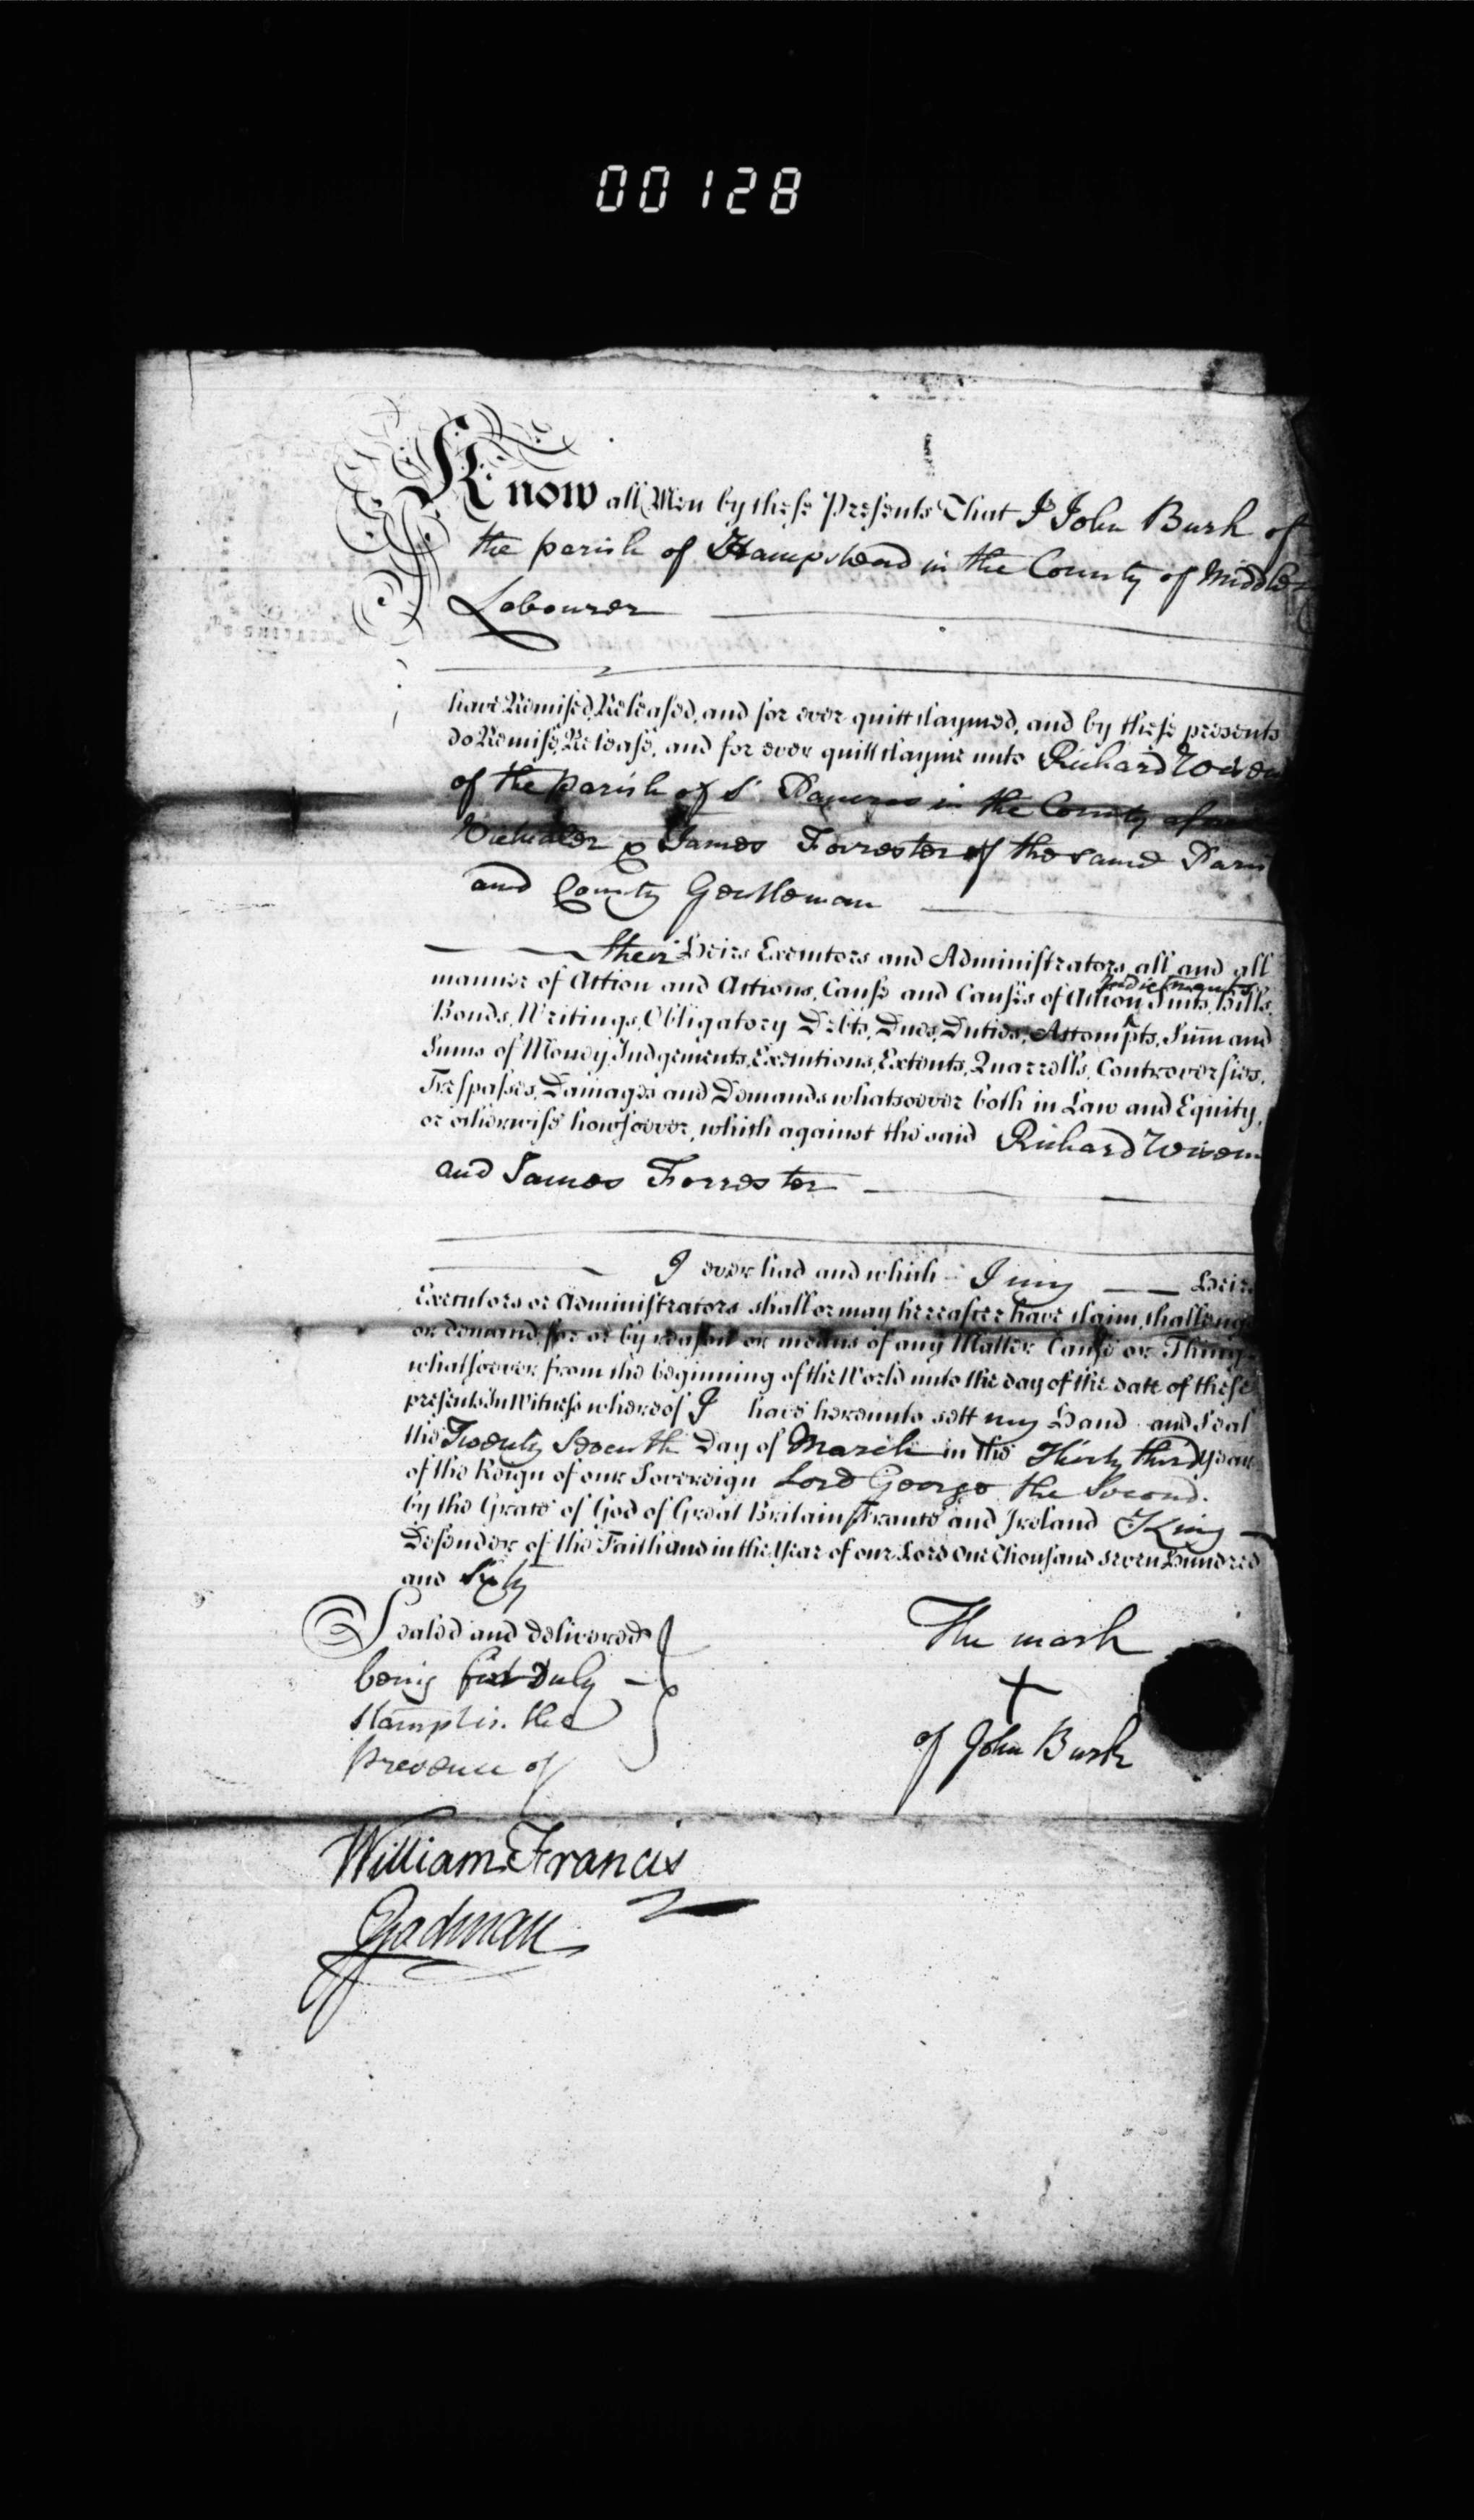 00128
Know all Men by these Presents That I John Bush of
the parish of Hampstead in the County of Middle
Labourer
have Remised, Released, and for ever quitt claymed, and by these presents
do Remise, Release, and for ever quitt clayme unto Richard
of the parish of St Pancras in the County of
Victualer & James Forrester of the same Paris
and County Gentleman
their Heirs Executors and Administrators all and all
manner of Action and Actions, Cause and Causes of Action Suits, Bills,
Indictments
Bonds, Writings, Obligatory Debts, Dues, Duties, Accompts, Sum and
Sums of Money, Judgements, Executions, Extents, Quarrells, Controversies,
Trespasses, Damages and Demands whatsoever both in Law and Equity,
or otherwise howsoever, which against the said Richard
and James Forrester
I ever had and which I my Heirs
Executors or Administrators shall or may hereafter have claim, challenge
or demand, for or by reason or means of any Matter Cause or Thing
whatsoever from the beginning of the World unto the day of the date of these
presents In Witness whereof I have hereunto sett my Hand and Seal
the Twenty Seventh Day of March in the Thirty third year
of the Reign of our Sovereign Lord George the Second.
by the Grace of God of Great Britain France and Ireland King
Defender of the Faith and in the Year of our Lord One Thousand Seven Hundred
and Sixty
Sealed and delivered
being first Duly
stampt in the
presence of
The mark
+
of John Bush
William Francis
Godman